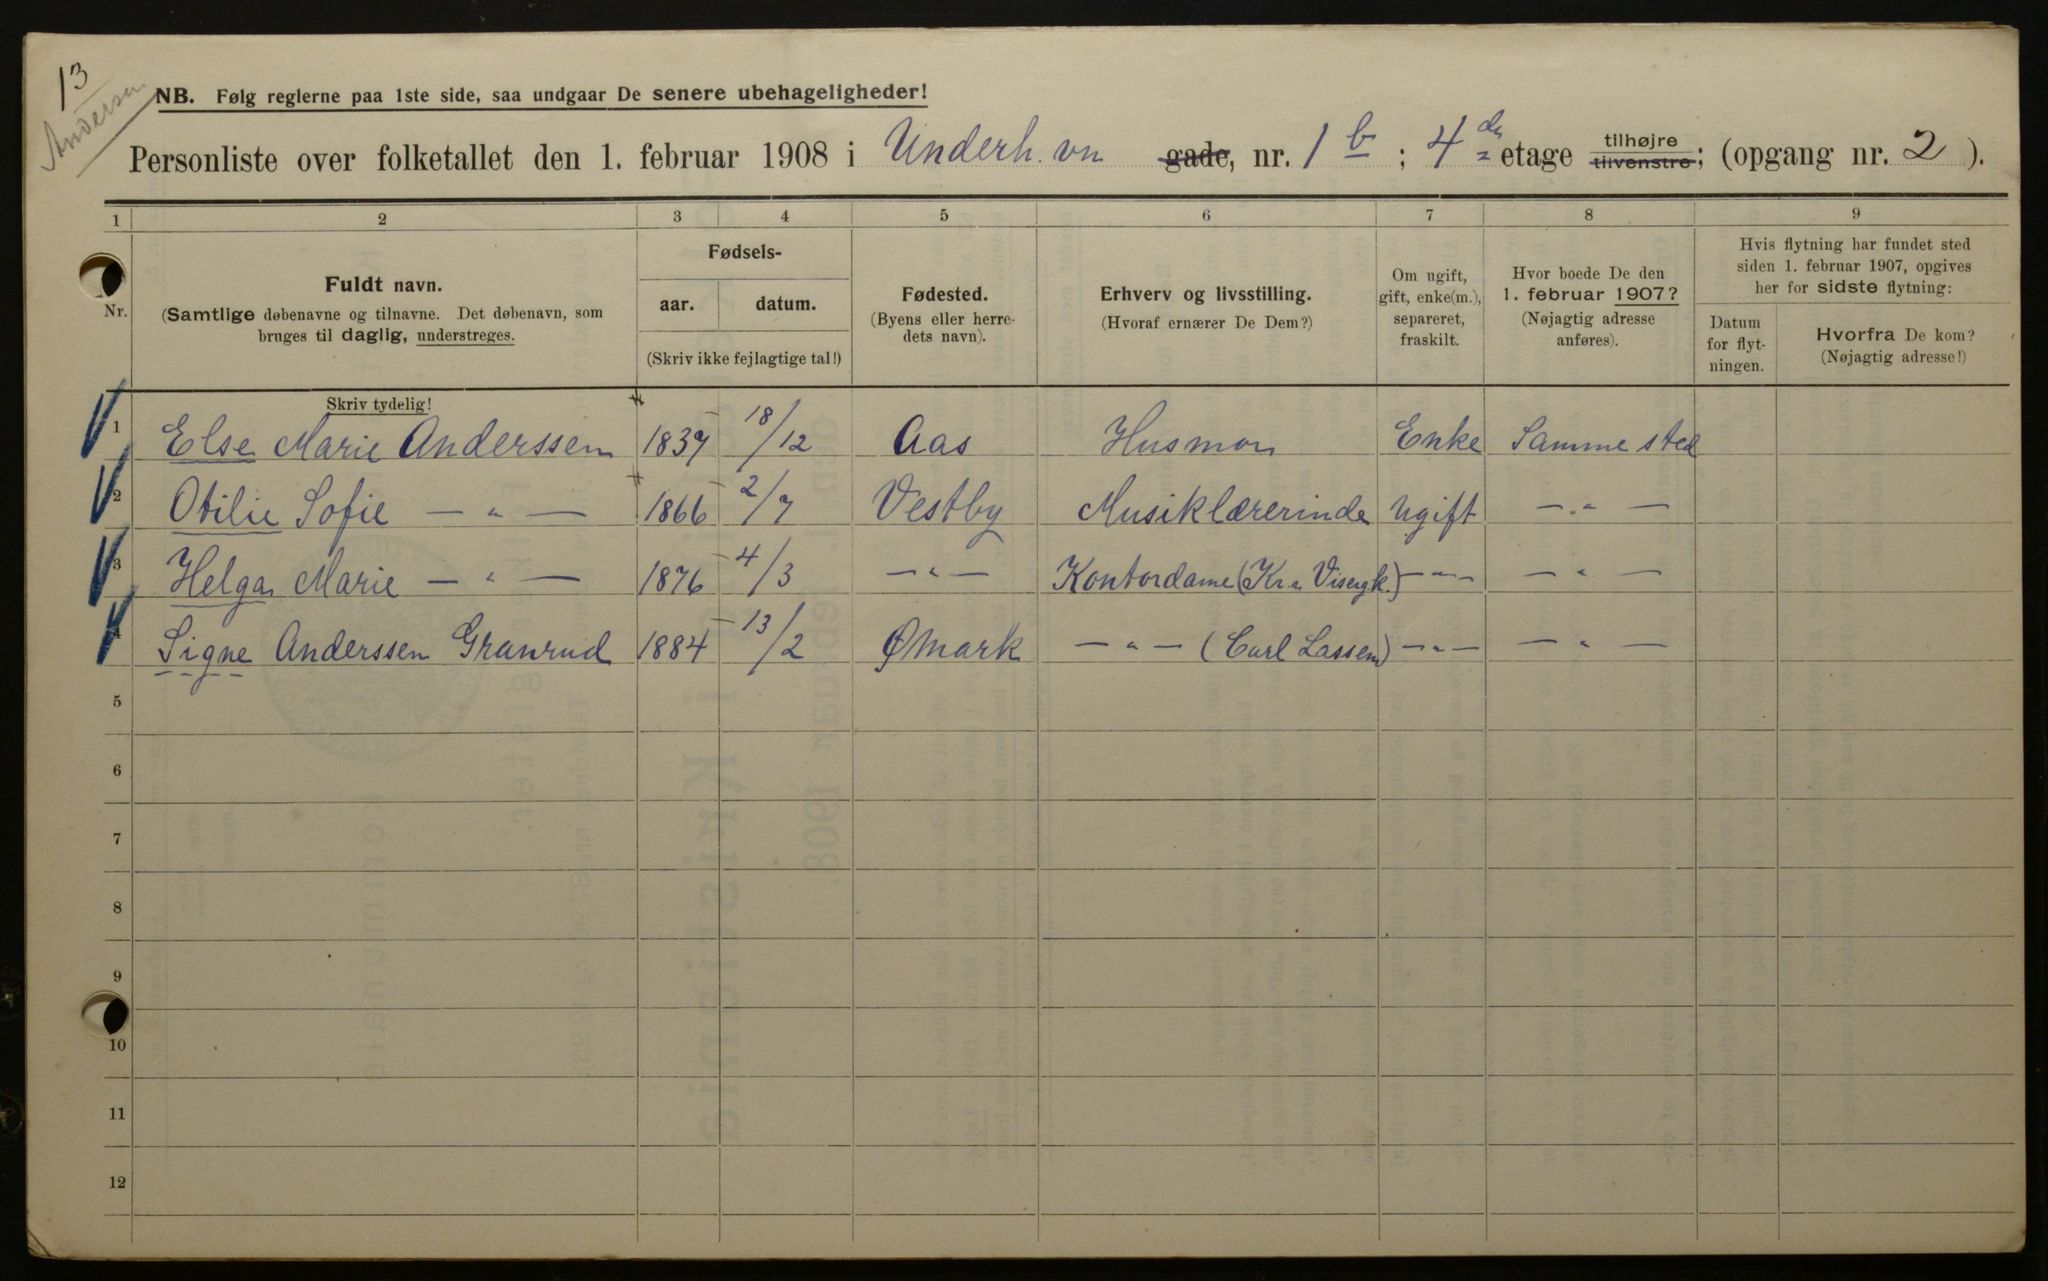 13
Andersen
NB. Følg reglerne paa 1ste side, saa undgaar De senere ubehageligheder!
Personliste over folketallet den 1. februar 1908 i Underh. vn gade, nr. 1 b ; 4 de etage tilhøjre tilvenstre; (opgang nr. 2 ).
1 2 3 4 5 6 7 8 9
Nr.
Fuldt navn.
(Samtlige døbenavne og tilnavne. Det døbenavn, som
bruges til daglig, understreges.
Fødsels-
aar. datum.
(Skriv ikke fejlagtige tal!)
Fødested.
(Byens eller herre-
dets navn).
Erhverv og livsstilling.
(Hvoraf ernærer De Dem?)
Om ugift,
gift, enke(m.),
separeret,
fraskilt.
Hvor boede De den
1. februar 1907?
(Nøjagtig adresse
anføres).
Hvis flytning har fundet sted
siden 1. februar 1907, opgives
her for sidste flytning:
Datum
for flyt-
ningen.
Hvorfra De kom?
(Nøjagtig adresse!)
Skriv tydelig!
1 Else Marie Anderssen 1839 18/12 Aas Husmor Enke Samme sted
2 Otilie Sofie — " — 1866 2/7 Vestby Musiklærerinde Ugift — " —
3 Helga Marie — " — 1876 4/3 — " — Kontordame (Kr.a Visergk.) — " — — " —
4 Signe Anderssen Granrud 1884 13/2 Ømark — " — (Carl Lassen) — " — — " —
5
6
7
8
9
10
11
12